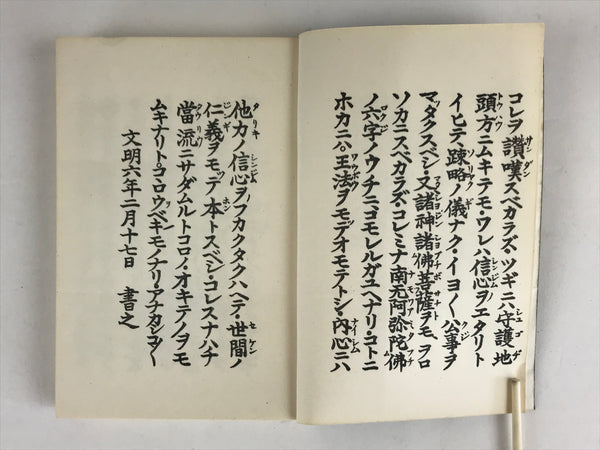 コレヲ讃嘆スベカラズ・ツギニハ守護地
頭方ニムキテモ・ワレハ信心ヲエタリト
イヒテ、疎略ノ儀ナク・イヨ〱公事ヲ
マッタクスベシ・又諸神諸佛菩薩ヲモ・ヲロ
ソカニスベカラズ・コレミナ南无阿弥陀佛
ノ六字ノウチニゴモレルガユヘナリ・コトニ
ホカニハ王法ヲモテデオモテトシ・内心ニハ
他力ノ信心ヲフカクタクハヘテ・世間ノ
仁義ヲモッテ本トスベシ・コレスナハチ
當流ニサダムルトコロノ・オキテノヲモ
ムキナリト・コヽロウベキモノナリ・アナカシコ〱
文明六年二月十七日 書之